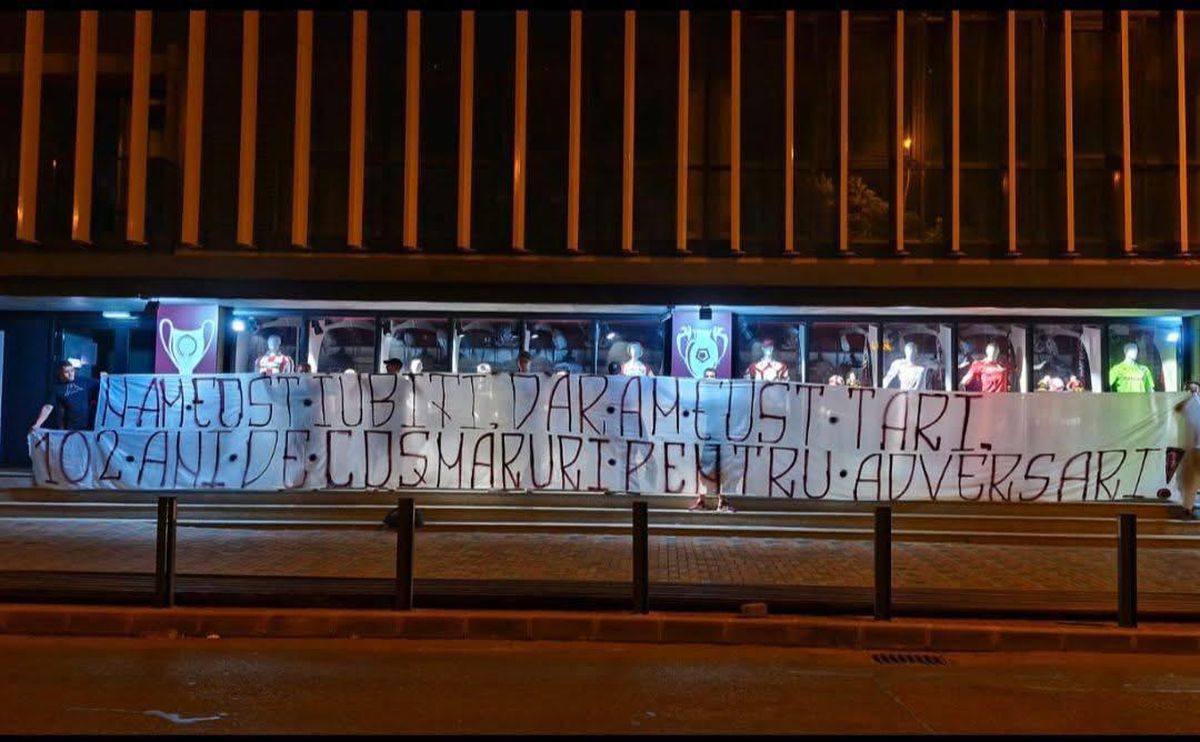 N-AM·FOST·IUBIȚI, DAR·AM·FOST·TARI,
102·ANI·DE·COȘMARURI·PENTRU·ADVERSARI!